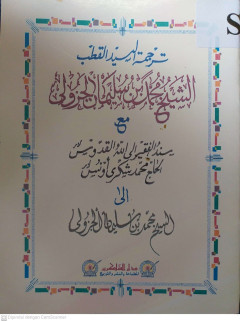 S
ترجمة السيد القطب
الشيخ محمد بن سليمان الجزولي
مع
سند الفقير إلى الله القدوس
الحاج محمد شكري أونيس
إلى
السيد محمد بن سليمان الجزولي